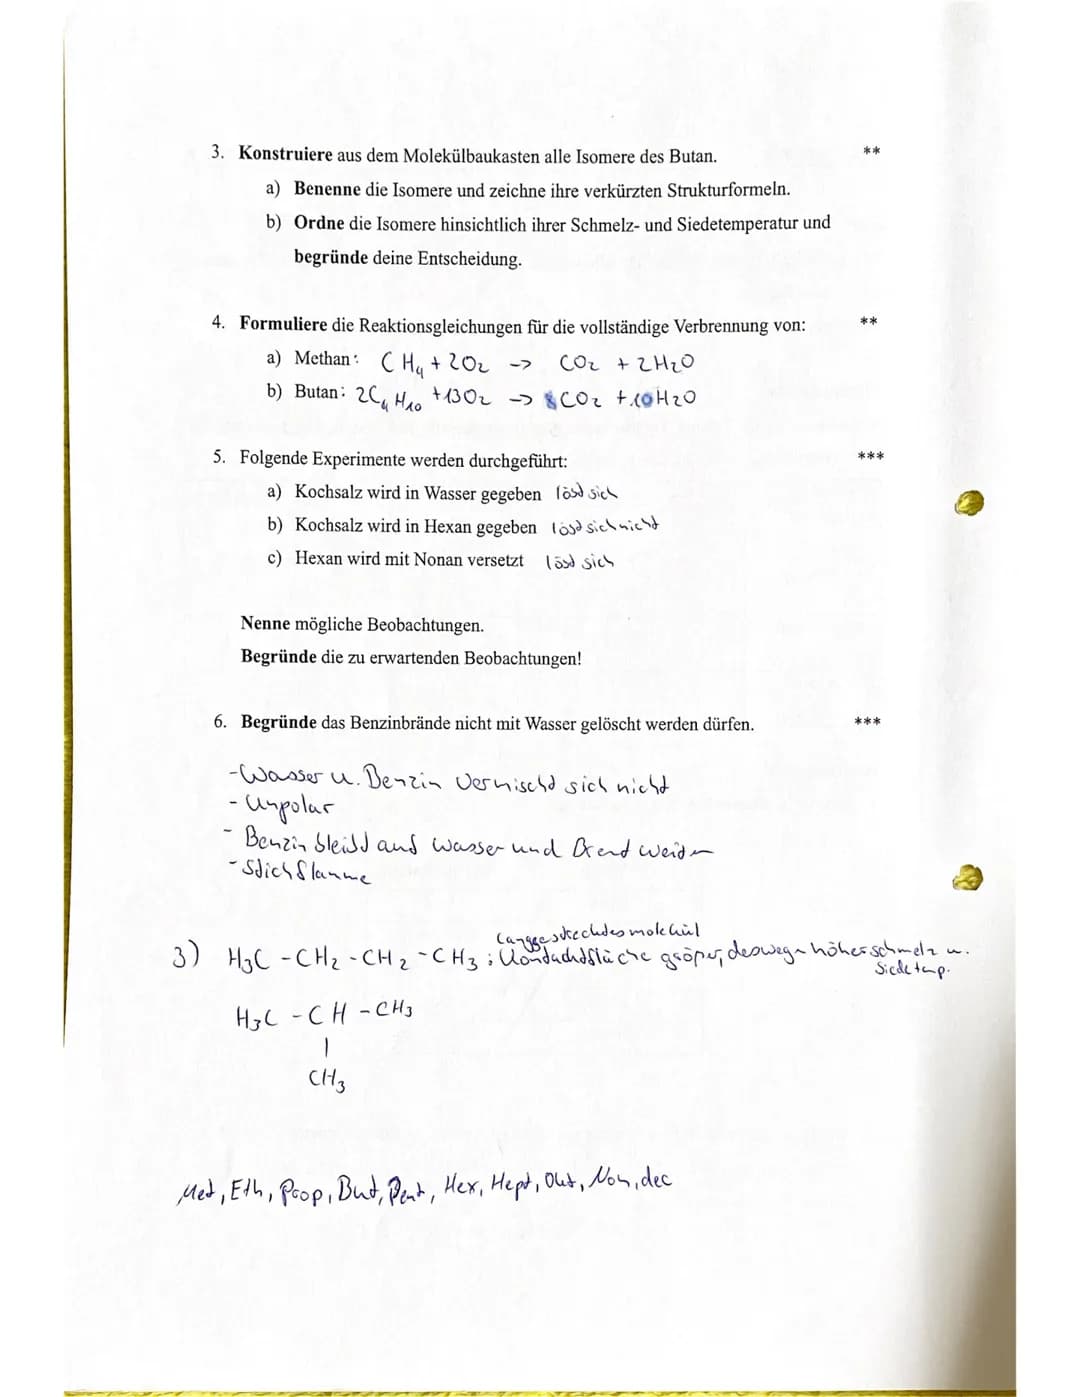 3. Konstruiere aus dem Molekülbaukasten alle Isomere des Butan. **
a) Benenne die Isomere und zeichne ihre verkürzten Strukturformeln.
b) Ordne die Isomere hinsichtlich ihrer Schmelz- und Siedetemperatur und
begründe deine Entscheidung.
4. Formuliere die Reaktionsgleichungen für die vollständige Verbrennung von: **
a) Methan: CH₄ + 2O₂ -> CO₂ + 2H₂O
b) Butan: 2C₄H₁₀ + 13O₂ -> 8CO₂ + 10H₂O
5. Folgende Experimente werden durchgeführt: ***
a) Kochsalz wird in Wasser gegeben löst sich
b) Kochsalz wird in Hexan gegeben löst sich nicht
c) Hexan wird mit Nonan versetzt löst sich
Nenne mögliche Beobachtungen.
Begründe die zu erwartenden Beobachtungen!
6. Begründe das Benzinbrände nicht mit Wasser gelöscht werden dürfen. ***
- Wasser u. Benzin vermischt sich nicht
- Unpolar
- Benzin bleibt auf Wasser und Brent weiter
- Stichflamme
langgestrecktes molekül
3) H₃C - CH₂ - CH₂ - CH₃ ; Kontaktfläche größer, deswegen höher schmelz u.
Siedetemp.
H₃C - CH - CH₃
|
CH₃
Met, Eth, Prop, But, Pent, Hex, Hept, Okt, Non, dec